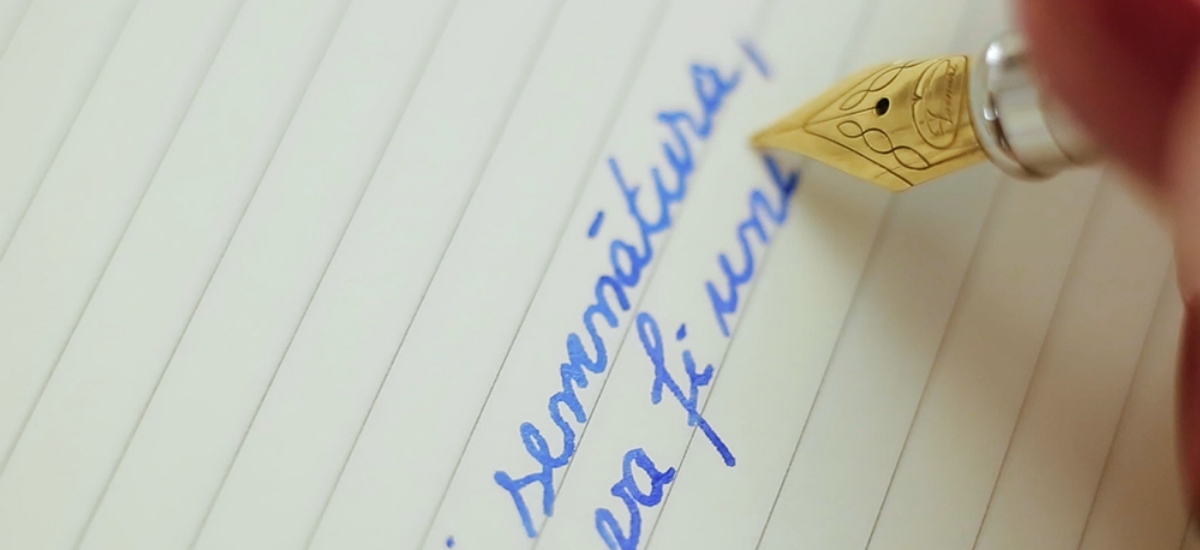 semnătura,
va fi